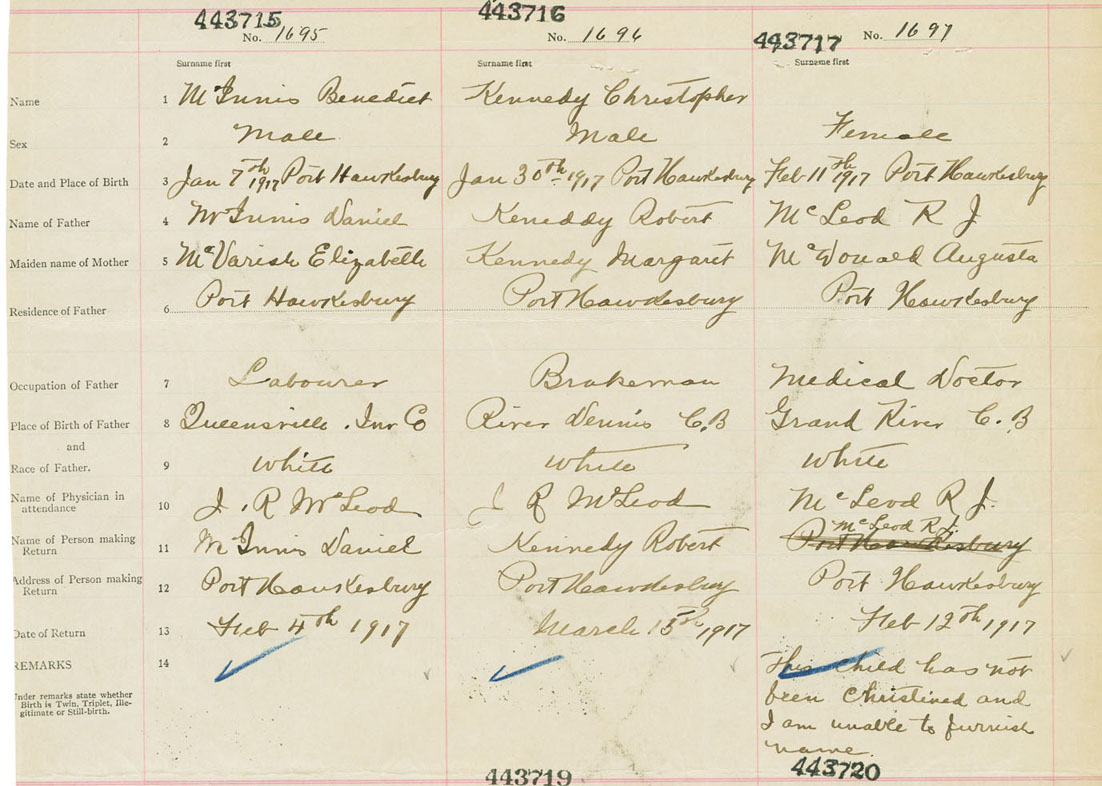 443715 443716 443717
No. 1695 No. 1696 No. 1697
Surname first Surname first Surname first
Name 1 McInnis Benedict Kennedy Christopher
Sex 2 Male Male Female
Date and Place of Birth 3 Jan 7th 1917 Port Hawkesbury Jan 30th 1917 Port Hawkesbury Feb 11th 1917 Port Hawkesbury
Name of Father 4 McInnis Daniel Keneddy Robert McLeod R J
Maiden name of Mother 5 McVarish Elizabeth Kennedy Margaret McDonald Augusta
Residence of Father 6 Port Hawkesbury Port Hawkesbury Port Hawkesbury
Occupation of Father 7 Labourer Brakeman Medical Doctor
Place of Birth of Father 8 Queensville . Inv Co River Dennis C.B Grand River C.B
and
Race of Father. 9 White White White
Name of Physician in 10 J. R McLeod J R McLeod McLeod R J.
attendance
McLeod R J.
Name of Person making 11 McInnis Daniel Kennedy Robert Port Hawkesbury
Return
Address of Person making 12 Port Hawkesbury Port Hawkesbury Port Hawkesbury
Return
Date of Return 13 Feb 4th 1917 March 1917 Feb 12th 1917
REMARKS 14 This child has not
Under remarks state whether been Christined and
Birth is Twin, Triplet, Ille-
gitimate or Still-birth. I am unable to furnish
name.
443719 443720